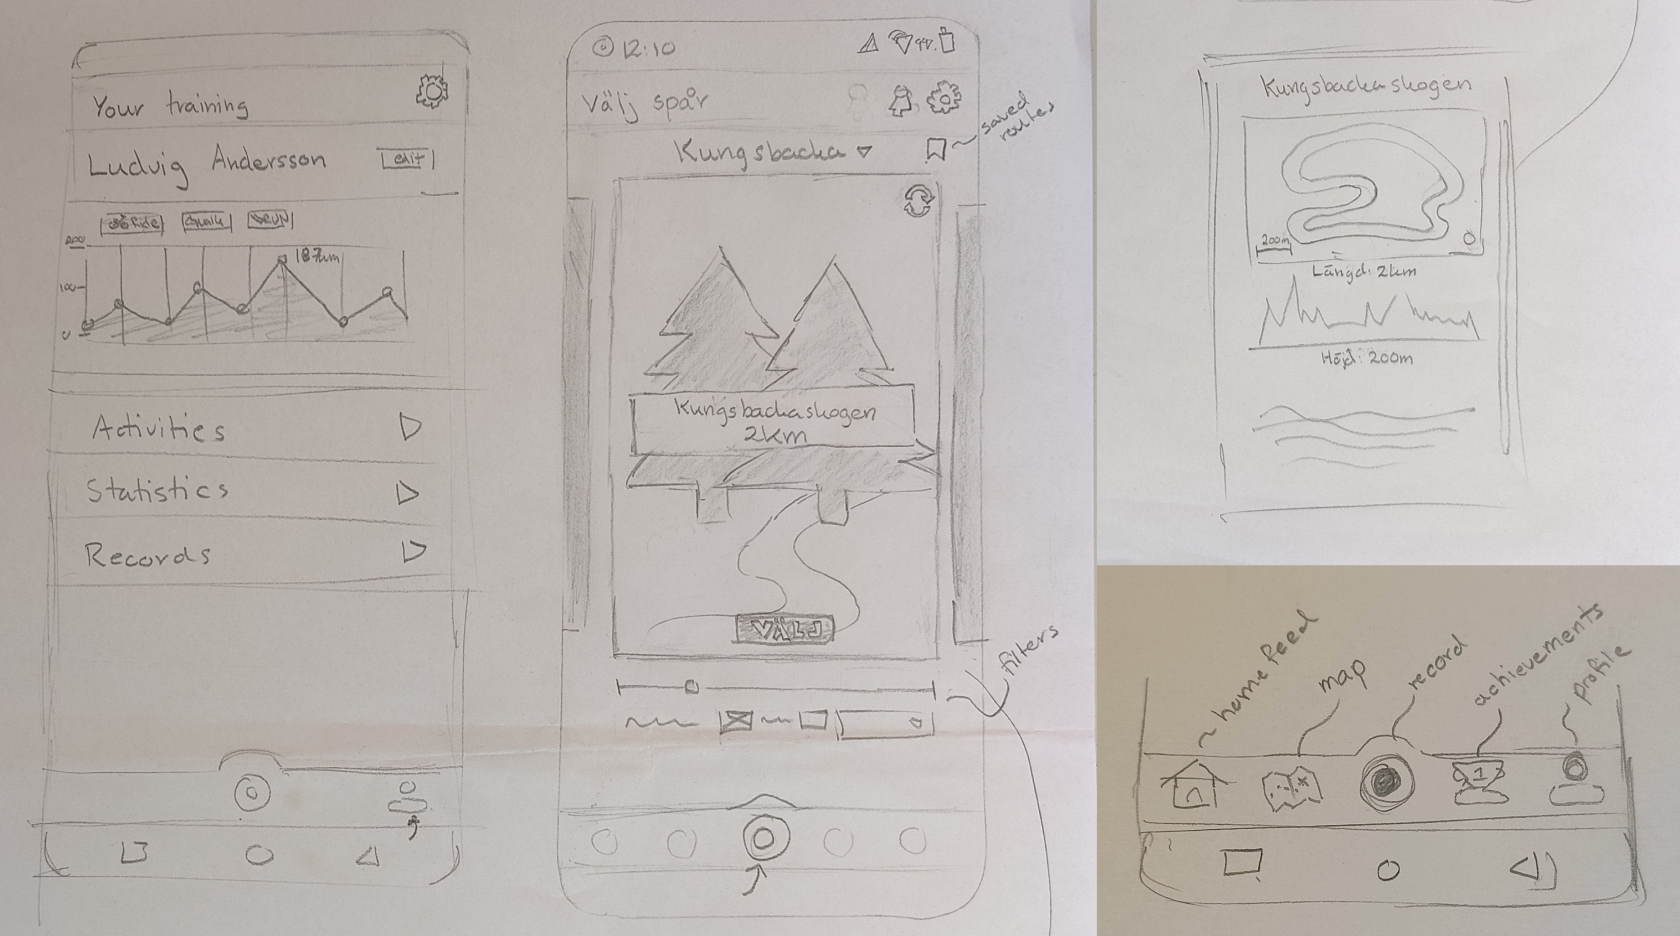 Your training
Ludvig Andersson
edit
Ride
walk
RUN
200
100
0
187km
Activities
Statistics
Records
12:10
Välj spår
saved
routes
Kungsbacka
Kungsbackaskogen
2km
VÄLJ
filters
Kungsbackaskogen
200m
Längd: 2km
Höjd: 200m
home feed
map
record
achievements
profile
1